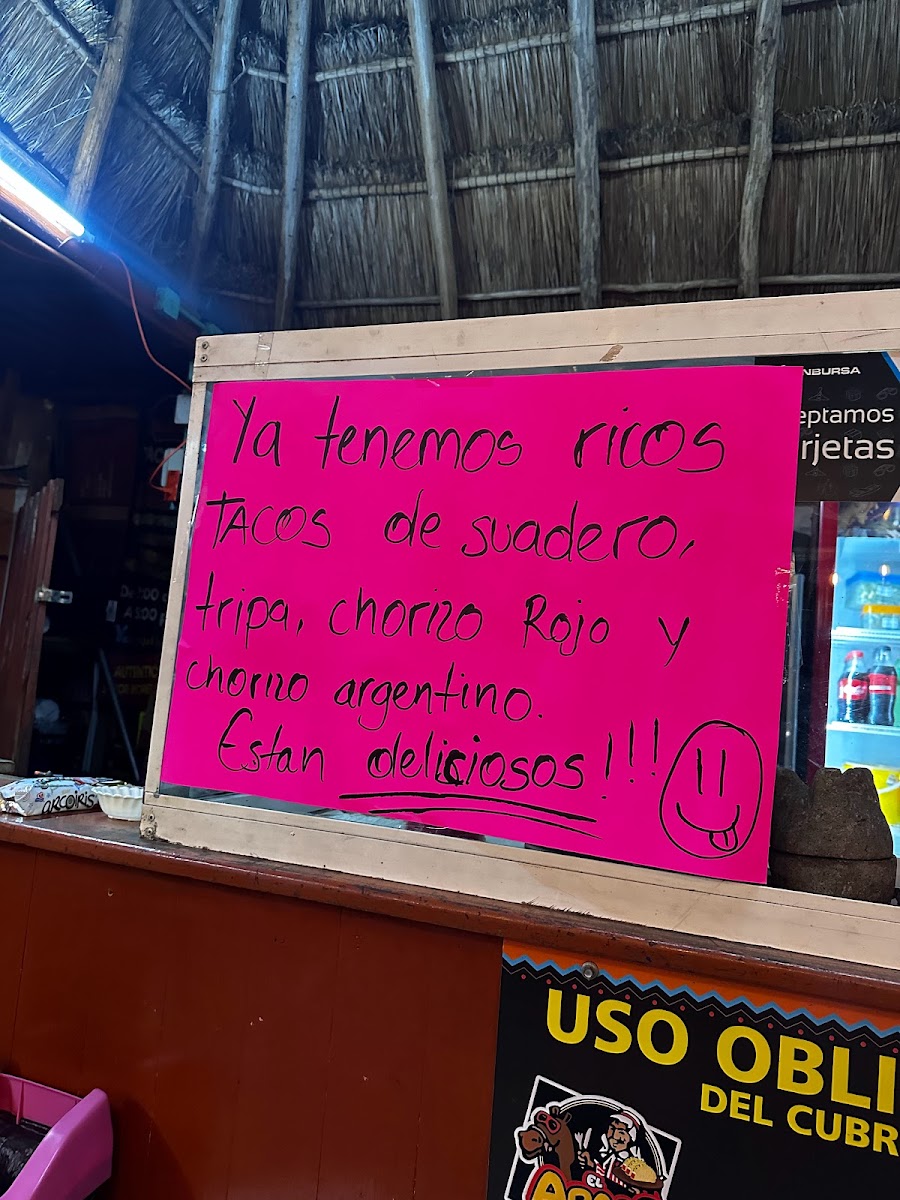 Ya tenemos ricos
TACOS de suadero,
tripa, chorizo Rojo y
chorizo argentino.
Estan deliciosos!!!
NBURSA
eptamos
rjetas
ARCOIRIS
USO OBLI
DEL CUBR
EL